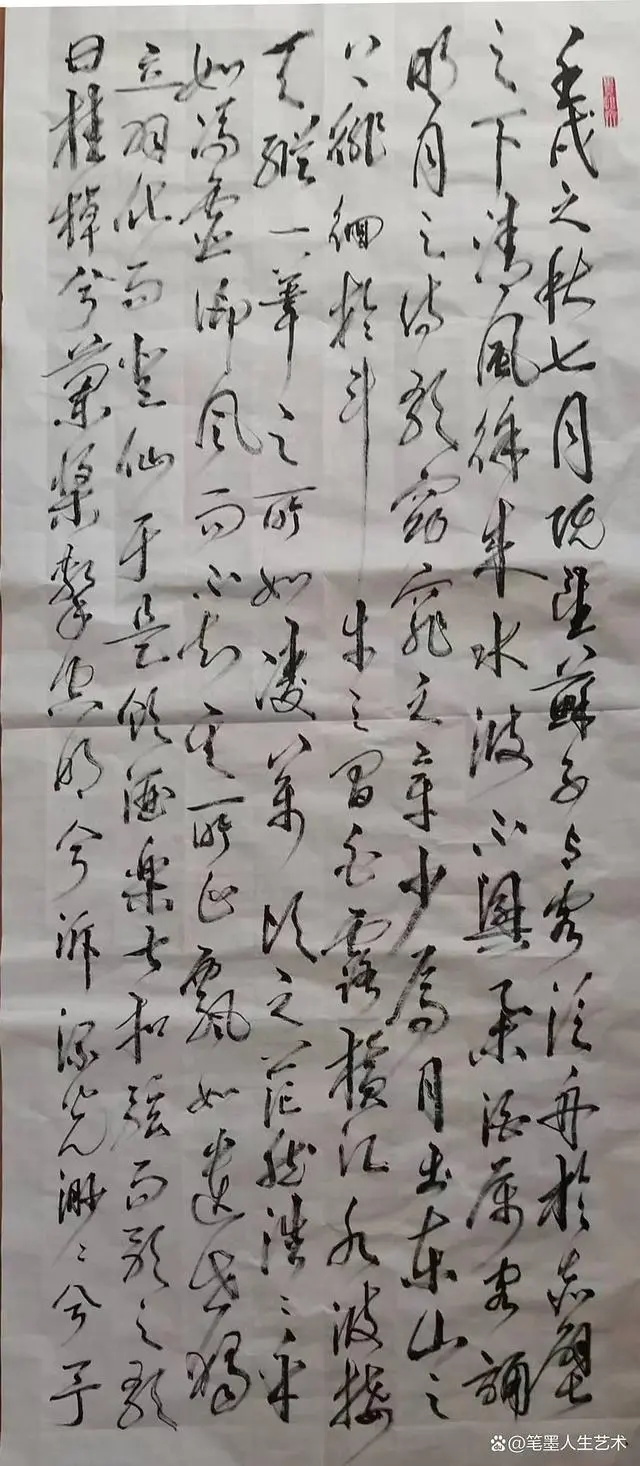 壬戌之秋七月既望蘇子与客泛舟於赤壁
之下清風徐来水波不興举酒属客誦
明月之诗歌窈窕之章少焉月出东山之
上徘徊於斗牛之间白露横江水波接
天纵一葦之所如凌萬顷之茫然浩々乎
如冯虚御风而不知其所止飘如遗世独
立羽化而登仙于是饮酒楽甚和弦而歌之歌
曰桂棹兮蘭桨擊空明兮泝流光渺々兮予
@笔墨人生艺术